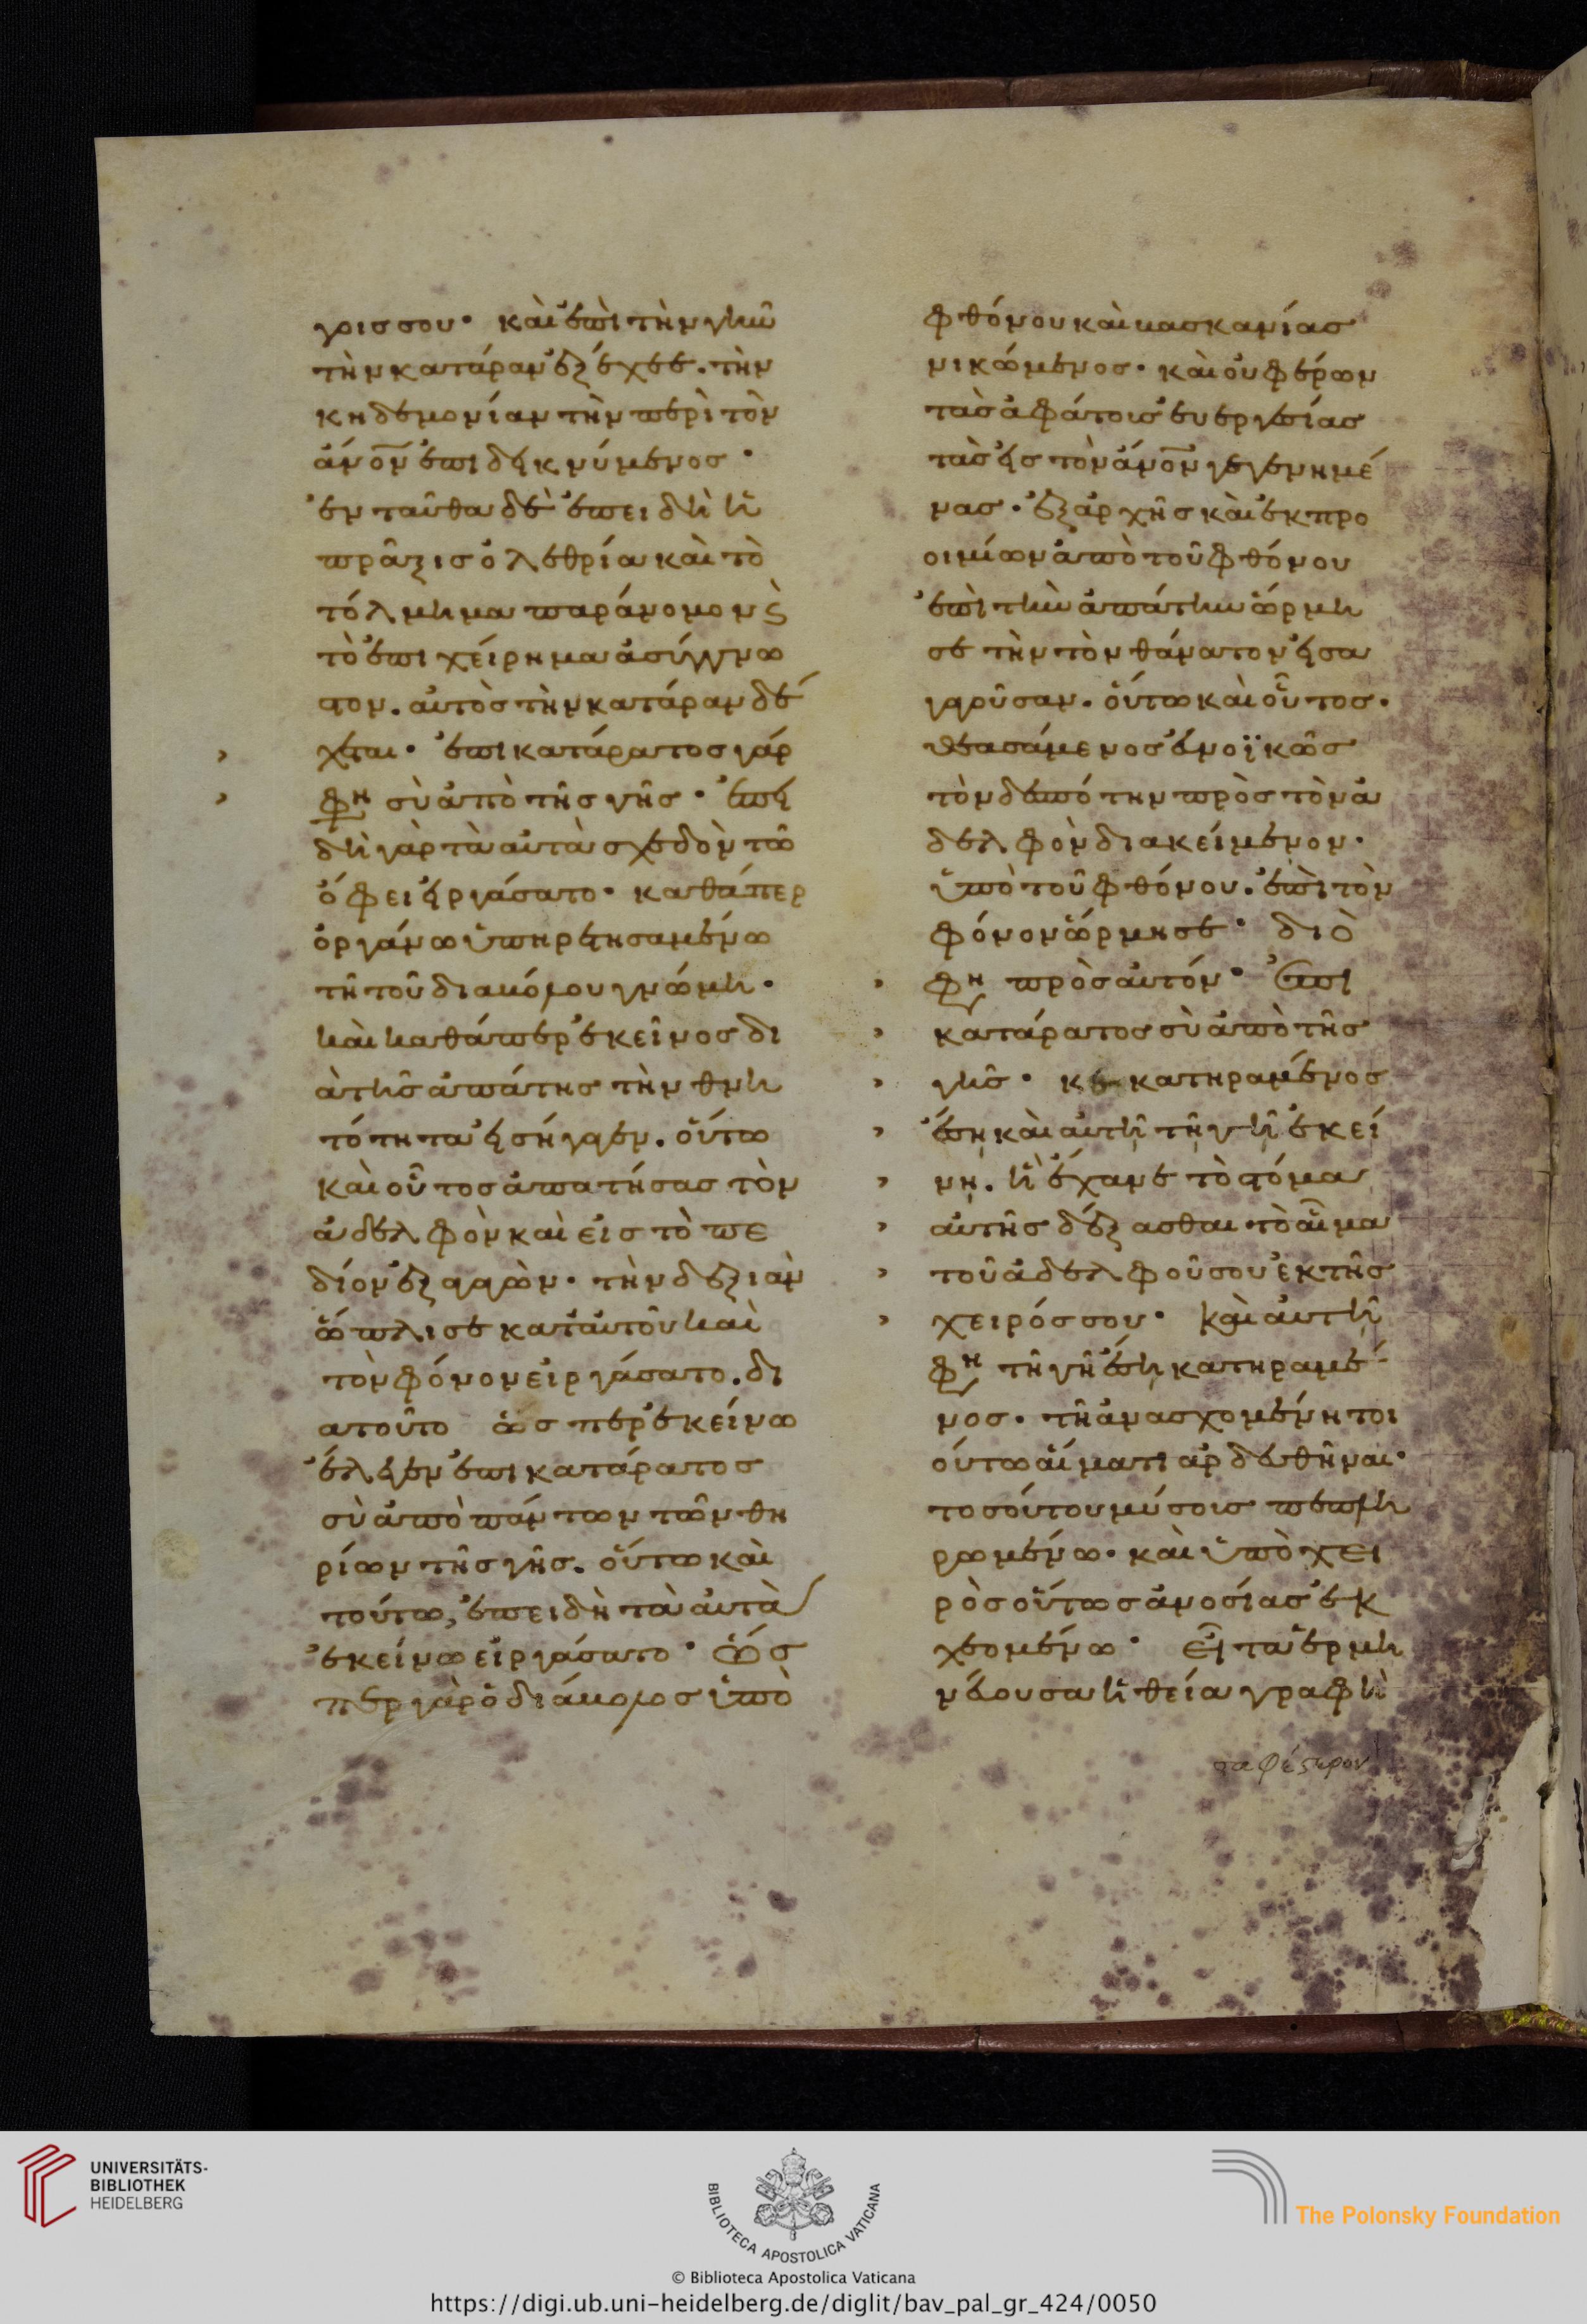 γοις σου· καὶ ἐπὶ τὴν γῆν
τὴν κατάραν ἐξέχεε. τὴν
κηδεμονίαν τὴν περὶ τὸν
ἄνον ἐπιδεικνύμενος·
ἐνταῦθα δὲ ἐπειδὴ ἡ
πρᾶξις ὀλεθρία καὶ τὸ
τόλμημα παράνομον ϛ
τὸ ἐπιχείρημα ἀσύγγνω
στον. αὐτὸς τὴν κατάραν δέ
χεται· ἐπικατάρατος γάρ
φη σὺ ἀπὸ τῆς γῆς· ἐπει
δὴ γὰρ τὰ αὐτὰ σχεδὸν τῶ
ὄφει εἰργάσατο· καθάπερ
ὀργάνω ὑπηρετησαμένω
τῆ τοῦ διαβόλου γνώμη·
καὶ καθάπερ ἐκεῖνος δι
ὰ τῆς ἀπάτης τὴν θνη
τότητα εἰσήγαγεν. οὕτω
καὶ οὗτος ἀπατήσας τὸν
ἀδελφὸν καὶ εἰς τὸ πε
δίον ἐξαγαγὼν. τὴν δεξιὰν
ὥπλισε κατ' αὐτοῦ καὶ
τὸν φόνον εἰργάσατο. δι
α τοῦτο ὥσπερ ἐκείνω
ἔλεγεν ἐπικατάρατος
σὺ ἀπὸ πάντων τῶν θη
ρίων τῆς γῆς. οὕτω καὶ
τούτω, ἐπειδὴ τὰ αὐτὰ
ἐκείνω εἰργάσατο· ὥσ
περ γὰρ ὁ διάβολος ὑπὸ
φθόνου καὶ βασκανίας
νικώμενος. καὶ οὐ φέρων
τὰς ἀφάτοις εὐεργεσίας
τὰς εἰς τὸν ἄνον γεγενημέ
νας. ἐξ ἀρχῆς καὶ ἐκ προ
οιμίων ἀπὸ τοῦ φθόνου
ἐπὶ τὴν ἀπάτην ὥρμη
σε τὴν τὸν θάνατον εἰσα
γαγοῦσαν. οὕτω καὶ οὗτος.
θεασάμενος εὐνοϊκῶς
τὸν δεσπότην πρὸς τὸν ἀ
δελφὸν διακείμενον.
ὑπὸ τοῦ φθόνου. ἐπὶ τὸν
φόνον ὥρμησε· διὸ
φη πρὸς αὐτόν· ἐπι
κατάρατος σὺ ἀπὸ τῆς
γῆς· κε κατηραμένος
ἔσῃ καὶ αὐτῇ τῇ γῇ ἐκεί
νῃ. ἣ ἔχανε τὸ στόμα
αὐτῆς δέξασθαι τὸ αἷμα
τοῦ ἀδελφοῦ σου ἐκ τῆς
χειρός σου· καὶ αὐτῇ
φη τῆ γῆ ἔσῃ κατηραμέ
νος. τῆ ἀνασχομένη τοι
ούτω αἵματι ἀρδευθῆναι.
τοσούτου μύσοις πεπλη
ρωμένω. καὶ ὑπὸ χει
ρὸς οὕτως ἀνοσίας ἐκ
χεομένω· εἶτα ἑρμη
νεύουσα ἡ θεία γραφὴ
σαφέστερον
UNIVERSITÄTS-
BIBLIOTHEK
HEIDELBERG
BIBLIOTECA APOSTOLICA VATICANA
The Polonsky Foundation
© Biblioteca Apostolica Vaticana
https://digi.ub.uni-heidelberg.de/diglit/bav_pal_gr_424/0050